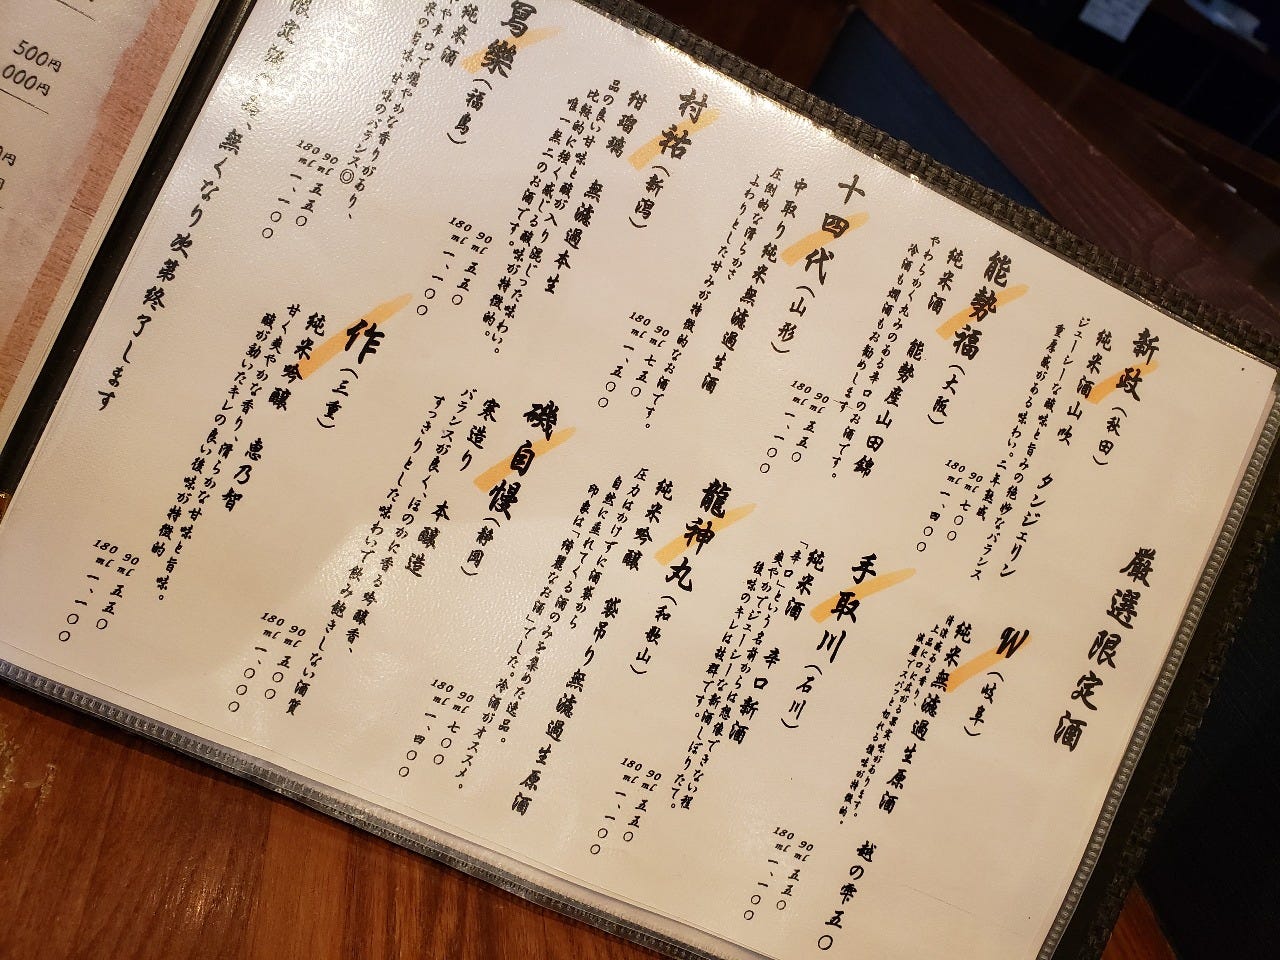 厳選限定酒
新政（秋田）
純米酒山吹 タンジェリン
ジューシーな酸味と旨みの絶妙なバランス
重厚感がある味わい。二年熟成
90ml 七〇〇
180ml 一、四〇〇
能勢福（大阪）
純米酒 能勢産山田錦
やわらかく丸みのある辛口のお酒です。
冷酒も燗酒もお勧めします
90ml 五五〇
180ml 一、一〇〇
十四代（山形）
中取り純米無濾過生酒
圧倒的な滑らかさ
ふわりとした甘みが特徴的なお酒です。
90ml 七五〇
180ml 一、五〇〇
村祐（新潟）
紺瑠璃 無濾過本生
品の良い甘味と酸が入り混じった味わい。
比較的に強く感じる酸味が特徴的。
唯一無二のお酒です。
90ml 五五〇
180ml 一、一〇〇
寫樂（福島）
純米酒
やや辛口で穏やかな香りがあり、
米の旨味・甘味のバランス◎
90ml 五五〇
180ml 一、一〇〇
W（岐阜）
純米無濾過生原酒
90ml 五五〇
180ml 一、一〇〇
越の雫五〇
手取川（石川）
純米酒 辛口新酒
「辛口」という名前からは想像できない程
爽やかでジューシーな新酒しぼりたて。
後味のキレは抜群です。
90ml 五五〇
180ml 一、一〇〇
龍神丸（和歌山）
純米吟醸 袋吊り無濾過生原酒
圧力はかけずに酒袋から
自然に垂れてくる酒のみを集めた逸品。
印象は「綺麗なお酒」でした。冷酒がオススメ。
90ml 七〇〇
180ml 一、四〇〇
磯自慢（静岡）
寒造り 本醸造
バランスが良く、ほのかに香る吟醸香、
すっきりとした味わいで飲み飽きしない酒質
90ml 五〇〇
180ml 一、〇〇〇
作（三重）
純米吟醸 恵乃智
甘く爽やかな香り、滑らかな甘味と旨味。
酸が効いたキレの良い後味が特徴的
90ml 五五〇
180ml 一、一〇〇
無くなり次第終了します
500円
000円